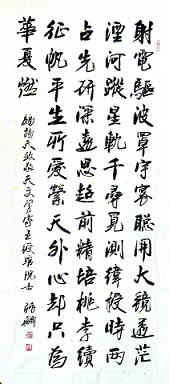 射電驅波罩宇寰聰用大鏡遥茫
湮河蹤星軌千尋覓測緯授時两
占先研深遠思超前精培桃李續
征帆平生所愛縈天外心却只為
華夏燃
鷓鴣天致敬天文學家王綬琯院士